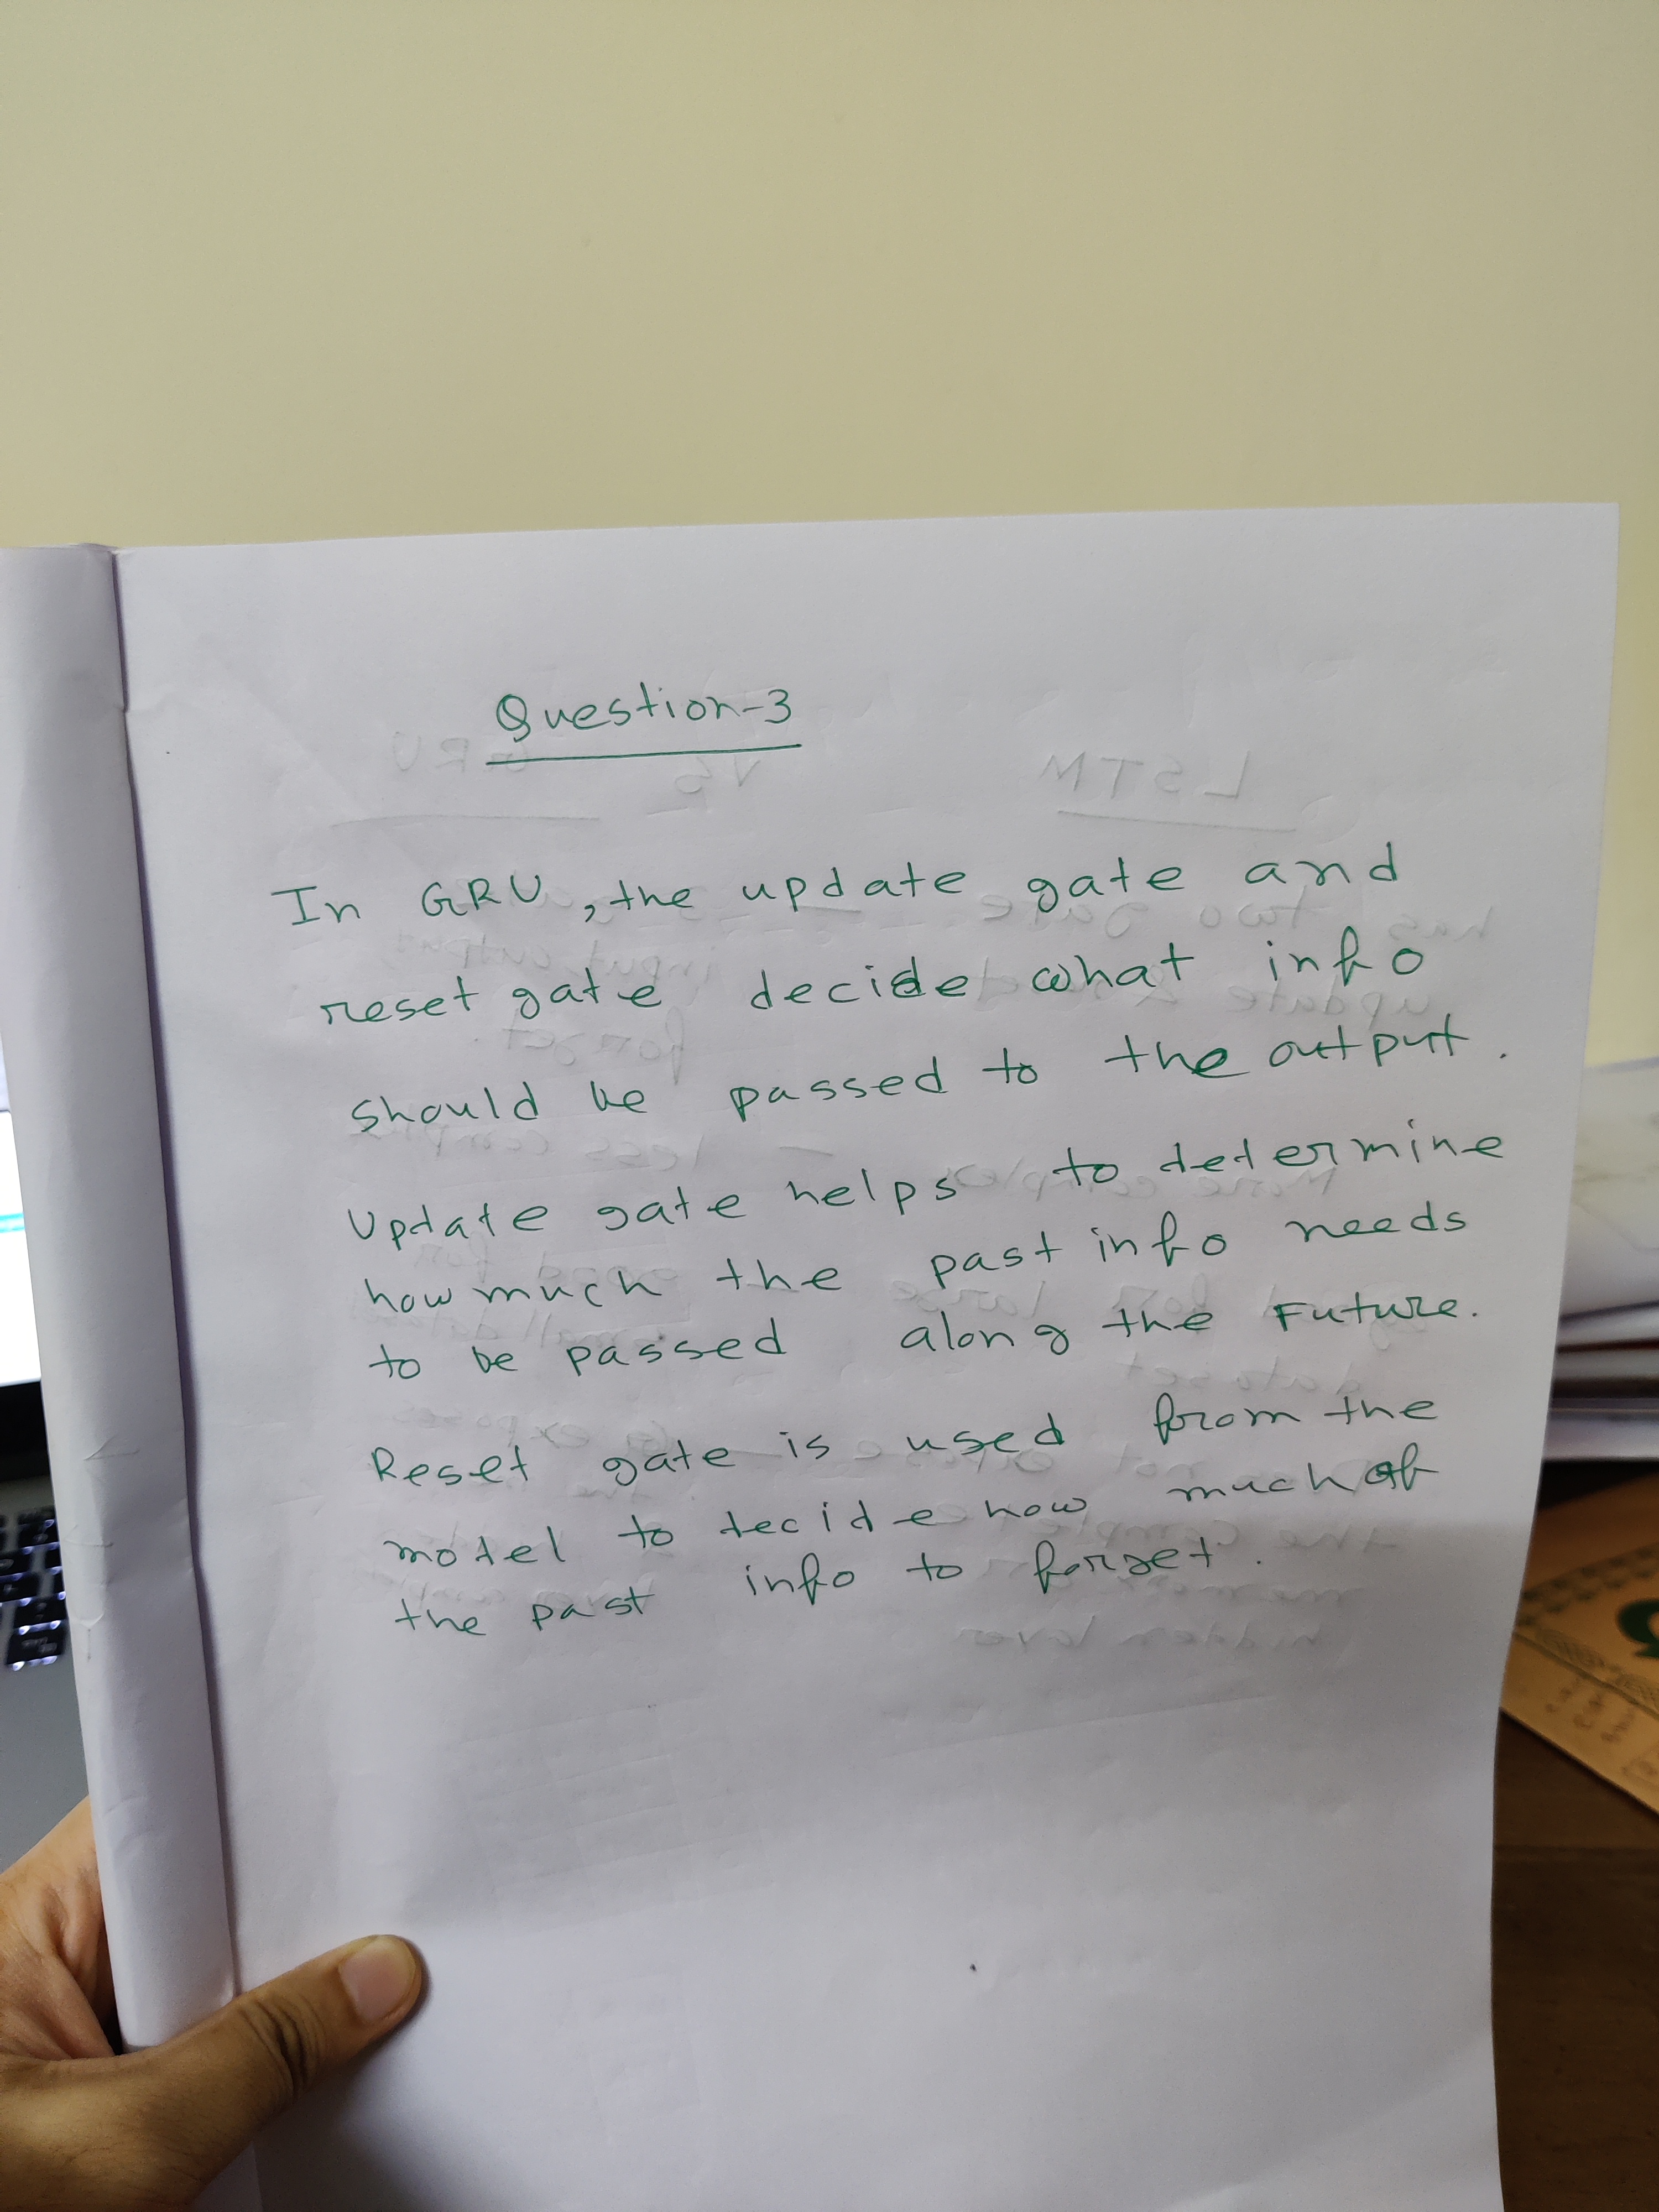 Question-3
In GRU, the update gate and
reset gate decide what info
should be passed to the output.
Update gate helps to determine
how much the past info needs
to be passed along the Future.
Reset gate is used from the
model to decide how much of
the past info to forget.